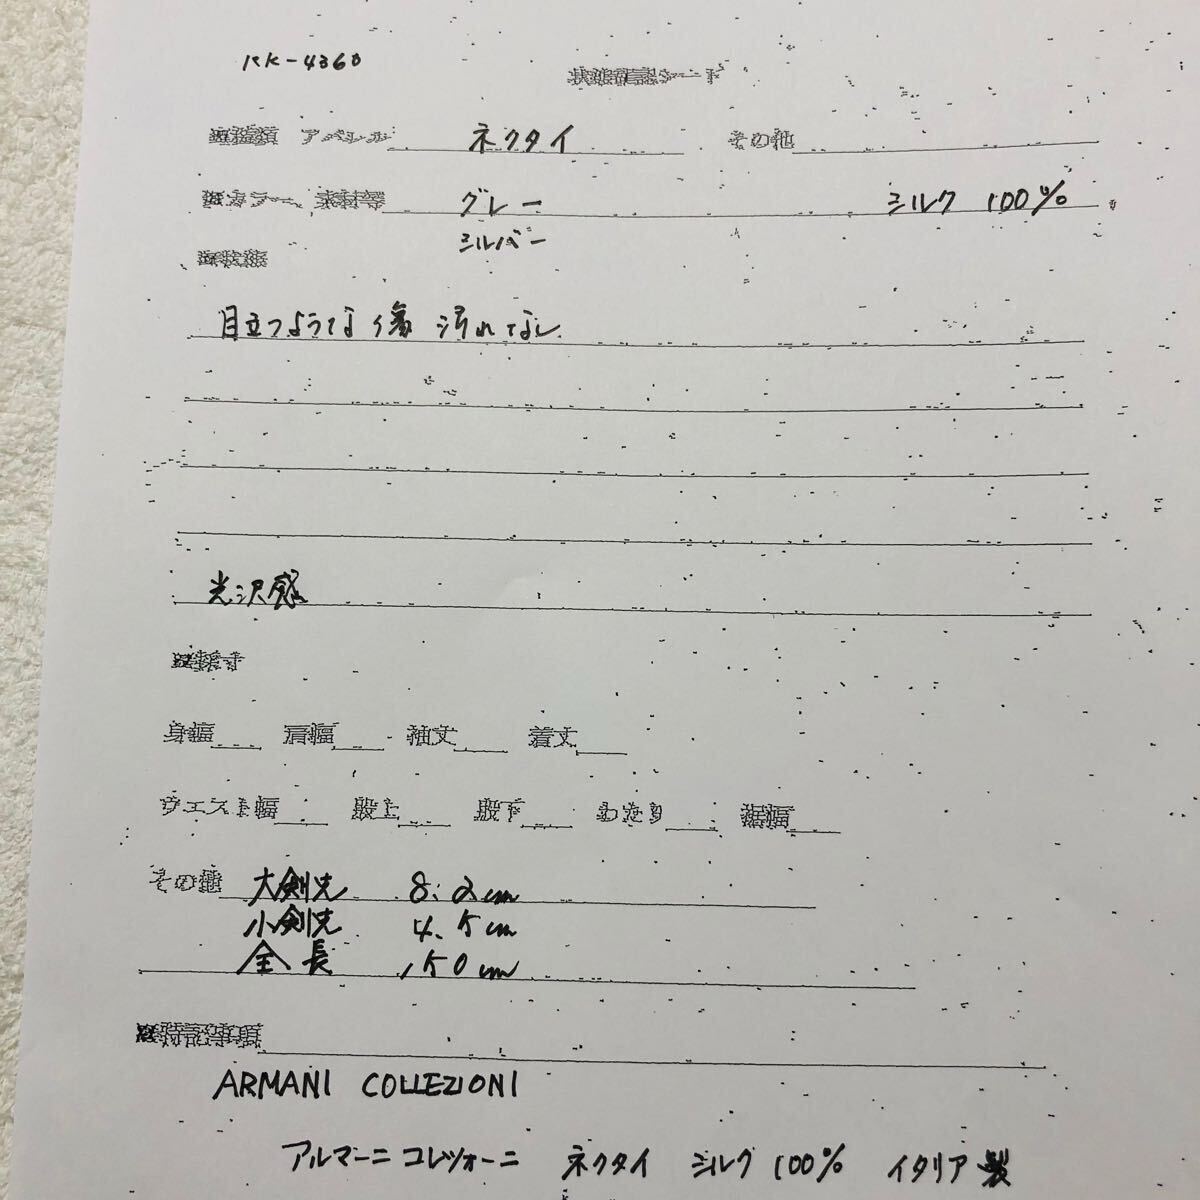 RK-4360
状態確認シート
※種類 アパレル ネクタイ その他
※カラー、素材等 グレー シルク 100%
シルバー
※状態
目立つような傷 汚れなし
光沢感
※採寸
身幅 肩幅 袖丈 着丈
ウエスト幅 股上 股下 わたり 裾幅
その他 大剣先 8.2cm
小剣先 4.5cm
全長 150cm
※特記事項
ARMANI COLLEZIONI
アルマーニ コレツォーニ ネクタイ シルク 100% イタリア製